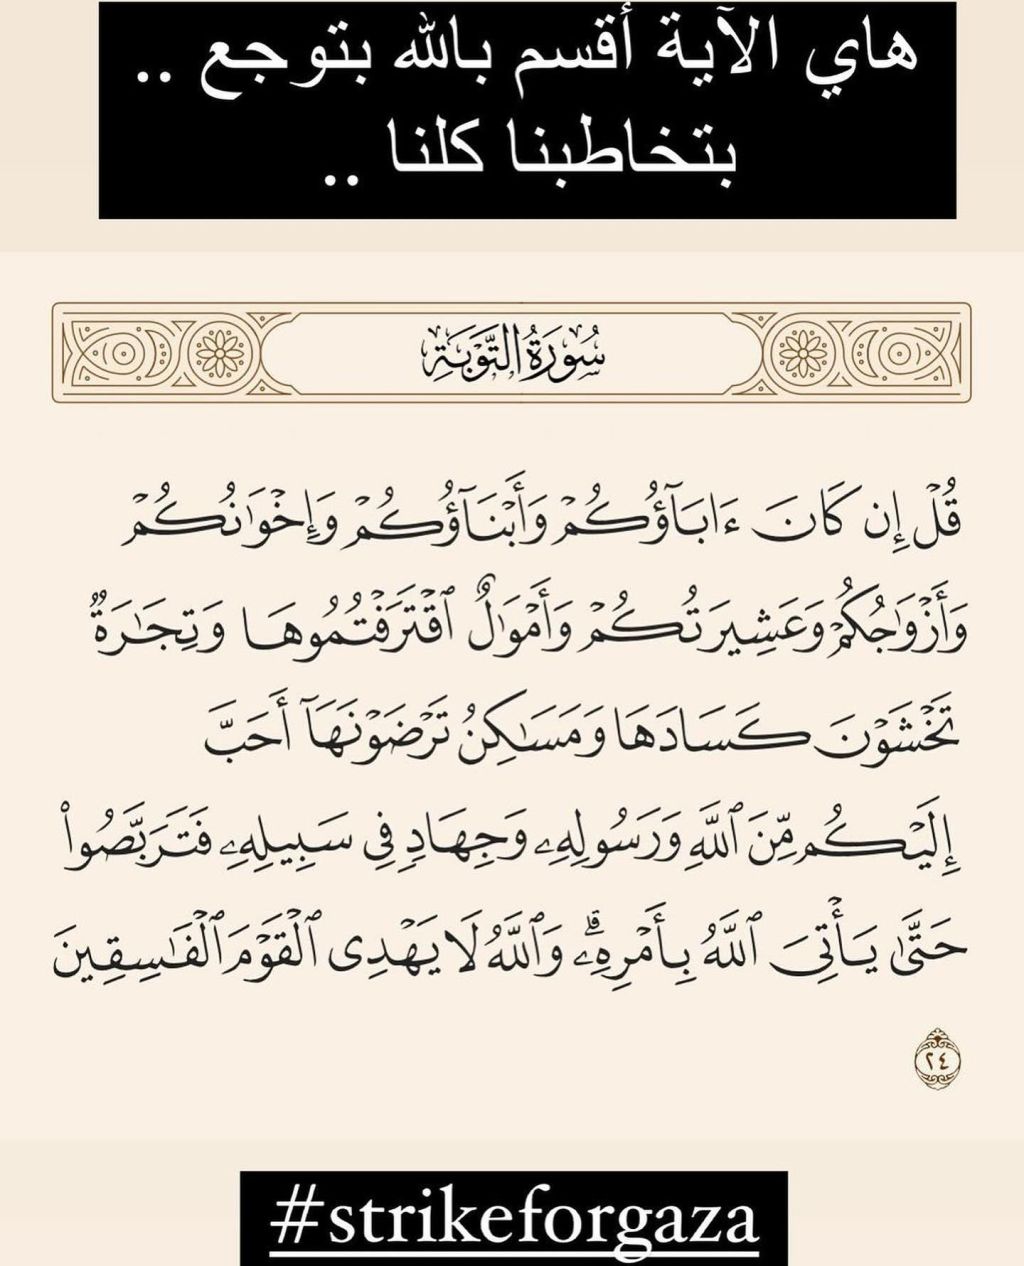 هاي الآية أقسم بالله بتوجع ..
بتخاطبنا كلنا ..
سُورَةُ التَّوۡبَةِ
قُلۡ إِن كَانَ ءَابَآؤُكُمۡ وَأَبۡنَآؤُكُمۡ وَإِخۡوَٰنُكُمۡ
وَأَزۡوَٰجُكُمۡ وَعَشِيرَتُكُمۡ وَأَمۡوَٰلٌ ٱقۡتَرَفۡتُمُوهَا وَتِجَٰرَةٞ
تَخۡشَوۡنَ كَسَادَهَا وَمَسَٰكِنُ تَرۡضَوۡنَهَآ أَحَبَّ
إِلَيۡكُم مِّنَ ٱللَّهِ وَرَسُولِهِۦ وَجِهَادٖ فِي سَبِيلِهِۦ فَتَرَبَّصُواْ
حَتَّىٰ يَأۡتِيَ ٱللَّهُ بِأَمۡرِهِۦۗ وَٱللَّهُ لَا يَهۡدِي ٱلۡقَوۡمَ ٱلۡفَٰسِقِينَ
٢٤
#strikeforgaza